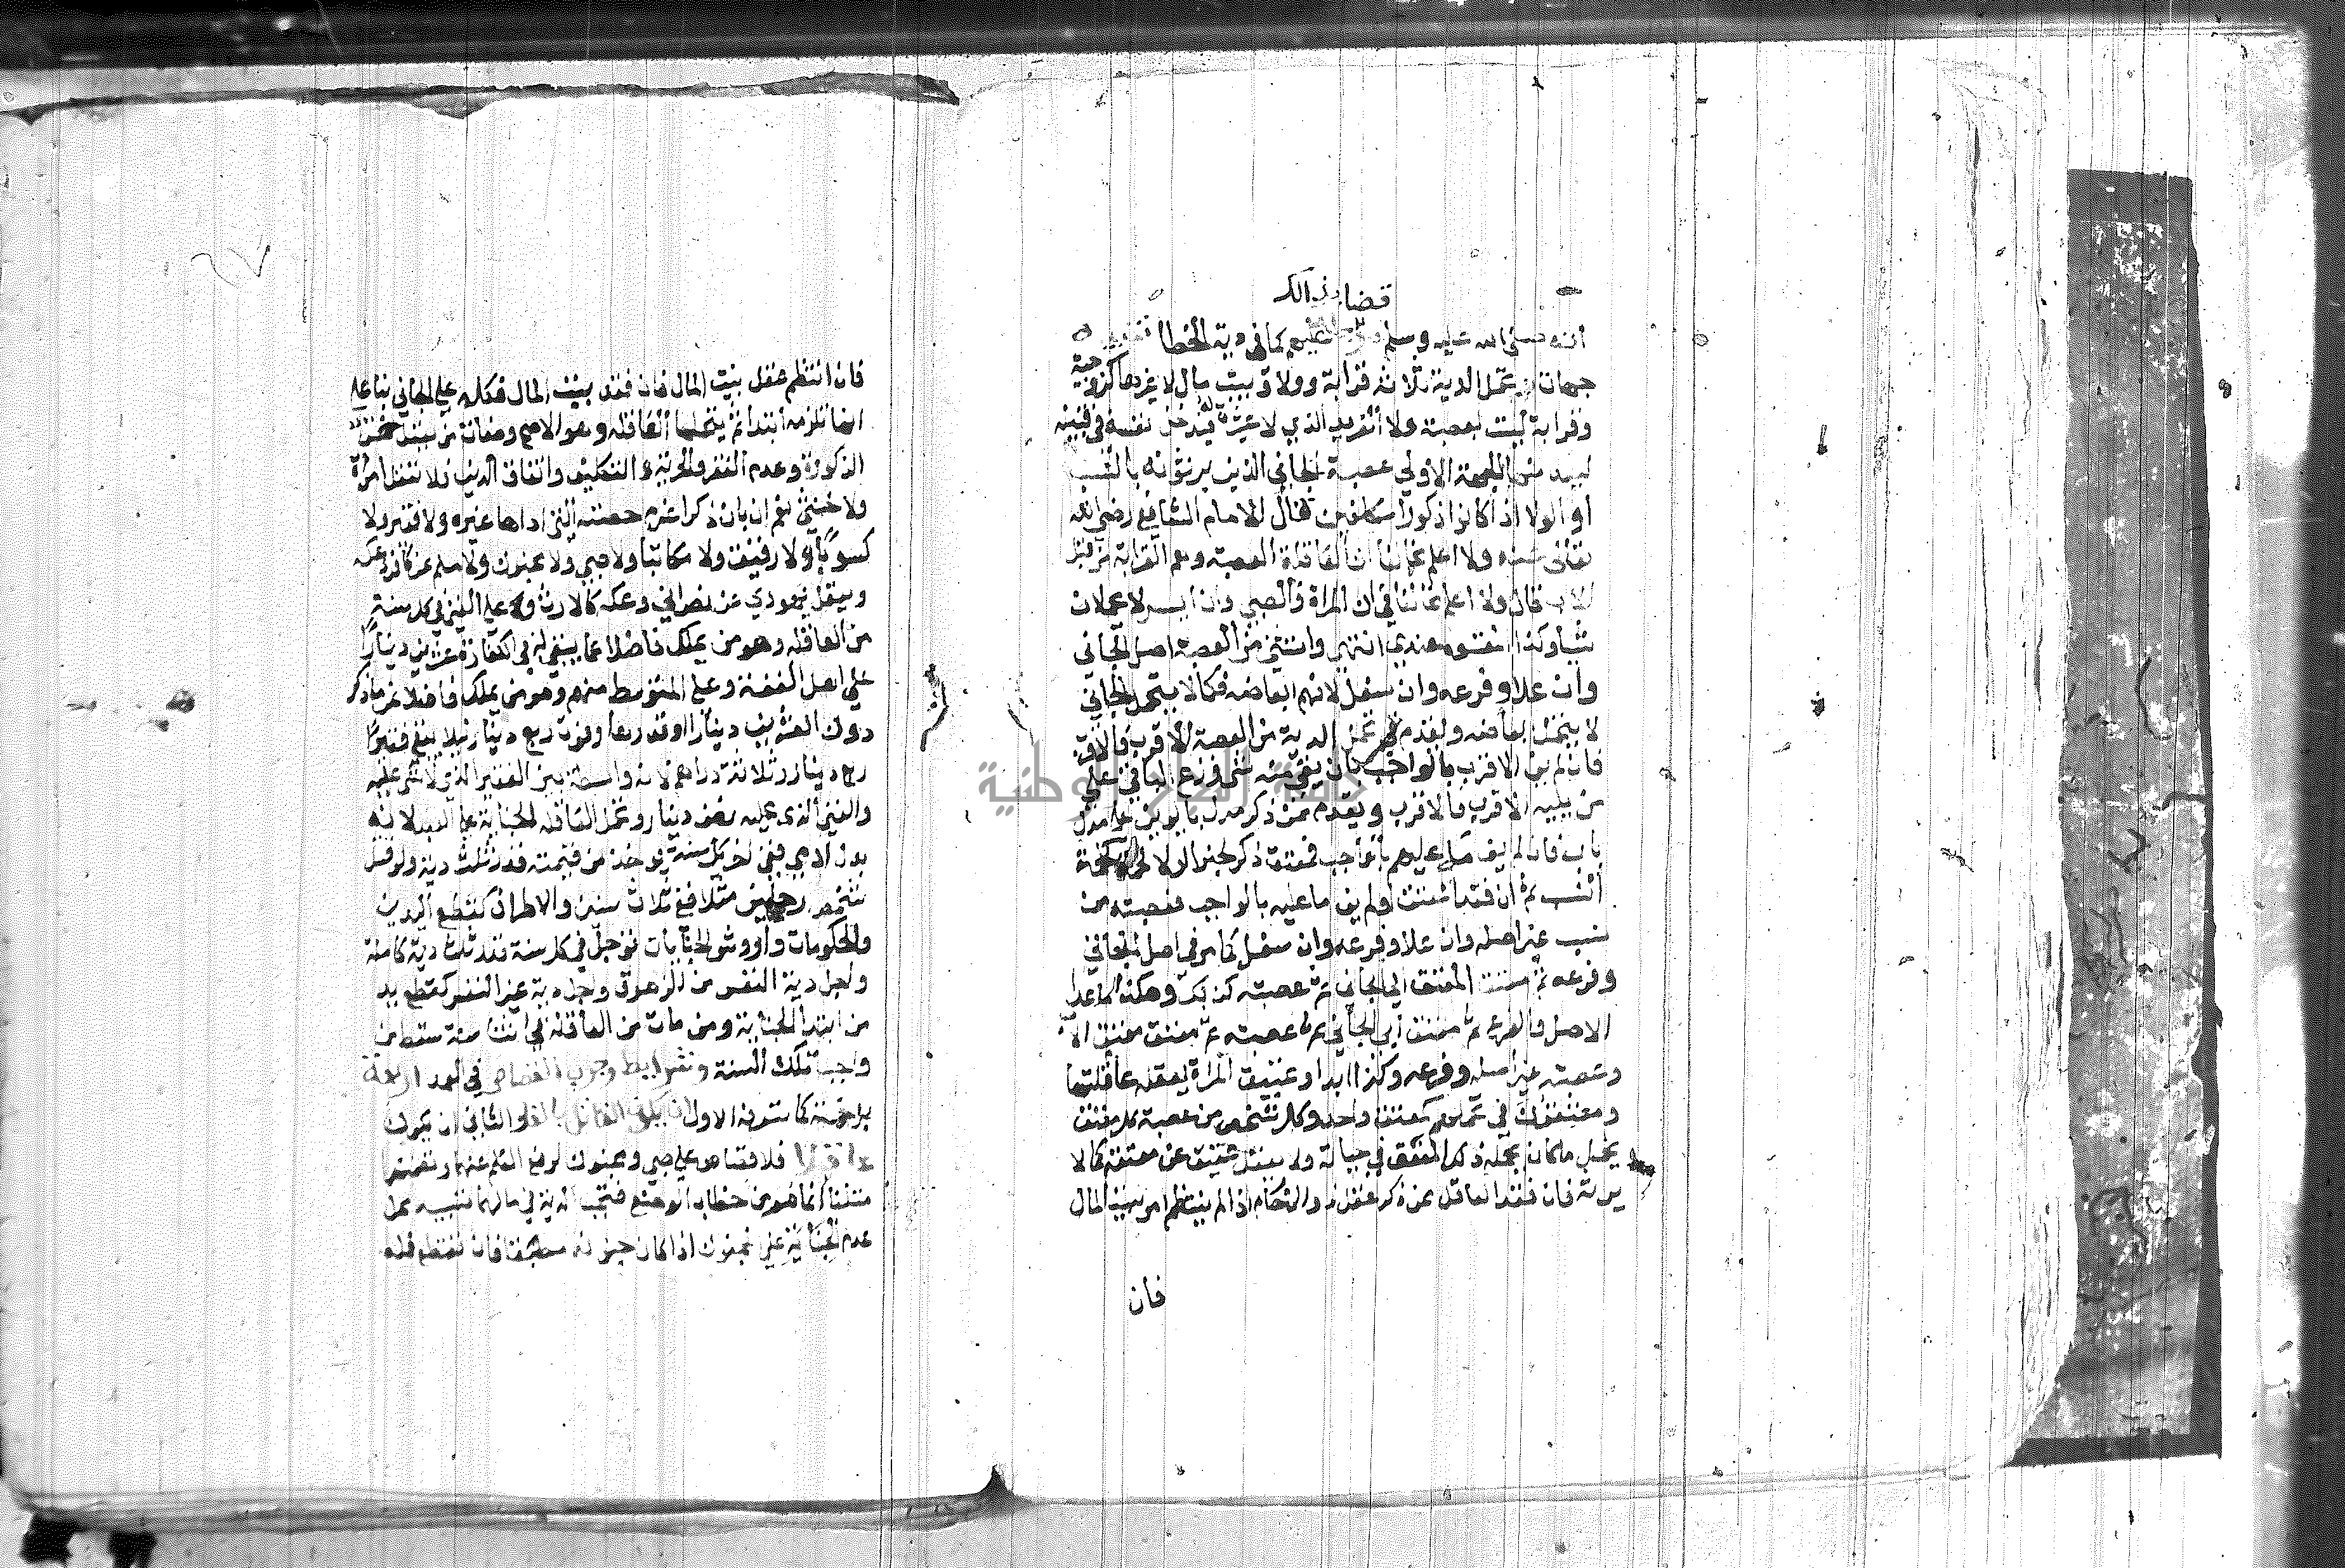 قضا بذلك
أنه صلى الله عليه وسلم كما في دية الخطأ
جهات تحمل الدية ثلاثة قرابة وولا وبيت مال لا غيرها كزوجية
وقرابة ليست بعصبة ولا الفريد الذي لا عشيرة له فيدخل نفسه في قبيلة
ليعد منها الجهة الاولى عصبة الجاني الذين يرثونه بالنسب
أو الولا اذا كانوا ذكورا مكلفين قال الامام الشافعي رضي الله
تعالى عنه ولا اعلم مخالفا ان العاقلة العصبة وهم القرابة من قبل
الاب قال ولا اعلم مخالفا في ان المراة والصبي وان أيسر لا يحملان
شيأ وكذا المعتوه عندي انتهى واستثنى من العصبة اصل الجاني
وان علا وفرعه وان سفل لانهم ابعاضه فكما لا يتحمل الجاني
لا يتحمل ابعاضه ويقدم في تحمل الدية من العصبة الاقرب فالاقرب
فان لم يف الاقرب بالواجب بان بقي منه شي وزع الباقي على
من يليه الاقرب فالاقرب ويقدم ممن ذكر مدل بابوين على مدل
باب فان لم يف ما عليهم بالواجب فمعتق ذكر لخبر الولا لحمة كلحمة
النسب ثم ان فقد المعتق او لم يف ما عليه بالواجب فعصبته من
نسب غير اصله وان علا وفرعه وان سفل كما مر في اصل الجاني
وفرعه ثم معتق المعتق الى الجاني ثم عصبته كذلك وهكذا ما عدا
الاصل والفرع ثم معتق أبي الجاني ثم عصبته ثم معتق معتق الاب
وعصبته غير أصله وفرعه وكذا ابدا وعتيق المراة يعقله عاقلتها
ومعتقون في تحملهم كمعتق واحد وكل شخص من عصبة كل معتق
يحمل ما كان يحمله ذلك المعتق في حياته ولا يعقل عتيق عن معتقه كما لا
يرثه فان فقد العاقل ممن ذكر عقل ذوو الارحام اذا لم ينتظم امر بيت المال
فان
فان انتظم عقل بيت المال فان فقد بيت المال فكله على الجاني بنا على
انها تلزمه ابتدا ثم يتحملها العاقلة وهو الاصح وصفات من يعقل خمس
الذكورة وعدم الفقر والحرية والتكليف واتفاق الدين فلا تعقل امراة
ولا خنثى نعم ان بان ذكرا غرم حصته التي اداها غيره ولا فقير ولو
كسوبا ولا رقيق ولا مكاتبا ولا صبي ولا مجنون ولا مسلم عن كافر وعكسه
ويعقل يهودي عن نصراني وعكسه كالارث وعلى الغني في كل سنة
من العاقلة وهو من يملك فاضلا عما يبقى له في الكفارة عشرين دينارا
على اهل الفضة وعلى المتوسط منهم وهو من يملك فاضلا عما ذكر
دون العشرين دينارا او قدرها وفوق ربع دينار ليلا يبقى فقيرا
ربع دينار او ثلاثة دراهم لانه واسطة بين الفقير الذي لا شي عليه
والغني الذي عليه نصف دينار وتحمل العاقلة الجناية على العبد لانه
بدل آدمي ففي اخر كل سنة يوخذ من قيمته قدر ثلث دية ولو قتل
شخص رجلين مثلا ففي ثلاث سنين والاطراف كقطع اليدين
والحكومات وأروش الجنايات توجل في كل سنة قدر ثلث دية كاملة
واجل دية النفس من الزهوق واجل دية غير النفس كقطع يد
من ابتدا الجناية ومن مات من العاقلة في اثنا سنة سقط من
واجب تلك السنة وشرايط وجوب القصاص في العمد اربعة
الاول ان يكون القاتل بالغا والثاني ان يكون
عاقلا فلا قصاص على صبي ومجنون لرفع القلم عنهما
انما هو من خطاب الوضع فتجب الدية في مالهما تنبيه محل
عدم الجناية على مجنون اذا كان جنونه مطبقا فان تقطع فله